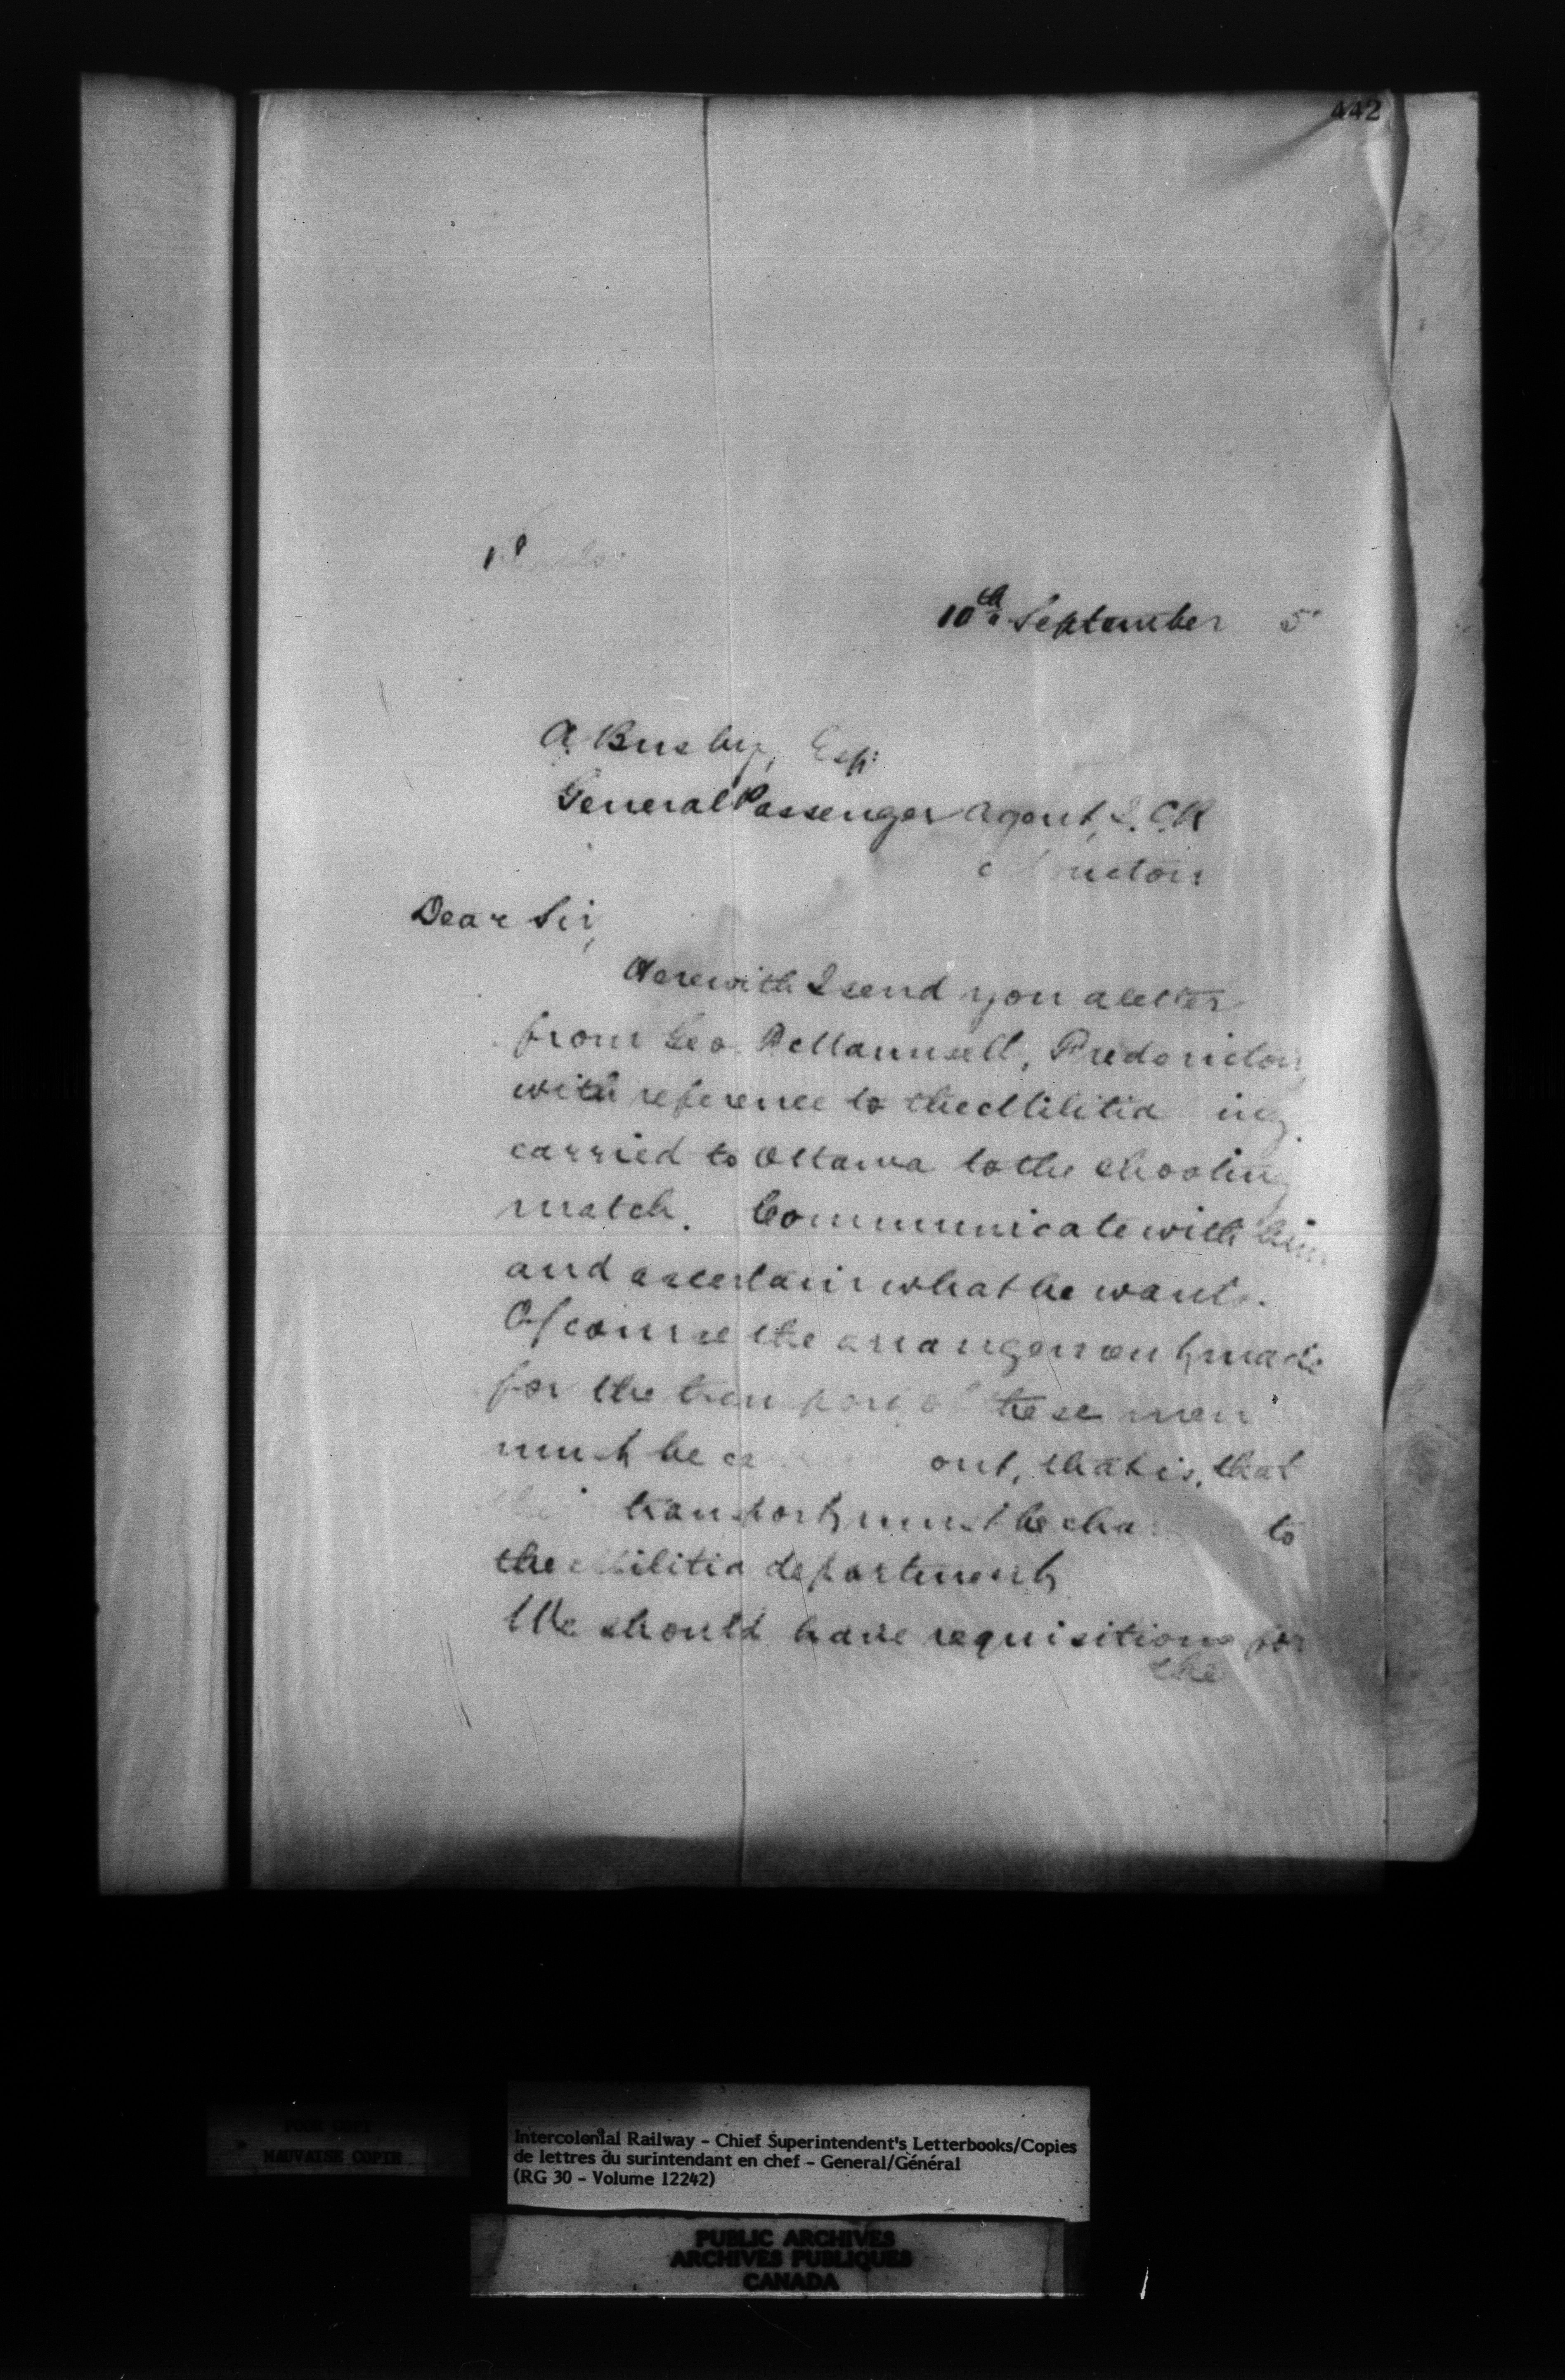 442
10th September 5
A. Busby, Esq:
General Passenger Agent, I.C.R
Dear Sir,
Herewith I send you a letter
from Geo. Maunsell, Fredericton,
with reference to the Militia
carried to Ottawa to the shooting
match. Communicate with him
and ascertain what he wants.
Of course the arrangement made
for the these men
must be out, that is, that
transport must be to
the Militia department
We should have requisitions for
the
MAUVAISE COPIE
Intercolonial Railway - Chief Superintendent's Letterbooks/Copies
de lettres du surintendant en chef - General/Général
(RG 30 - Volume 12242)
PUBLIC ARCHIVES
ARCHIVES PUBLIQUES
CANADA